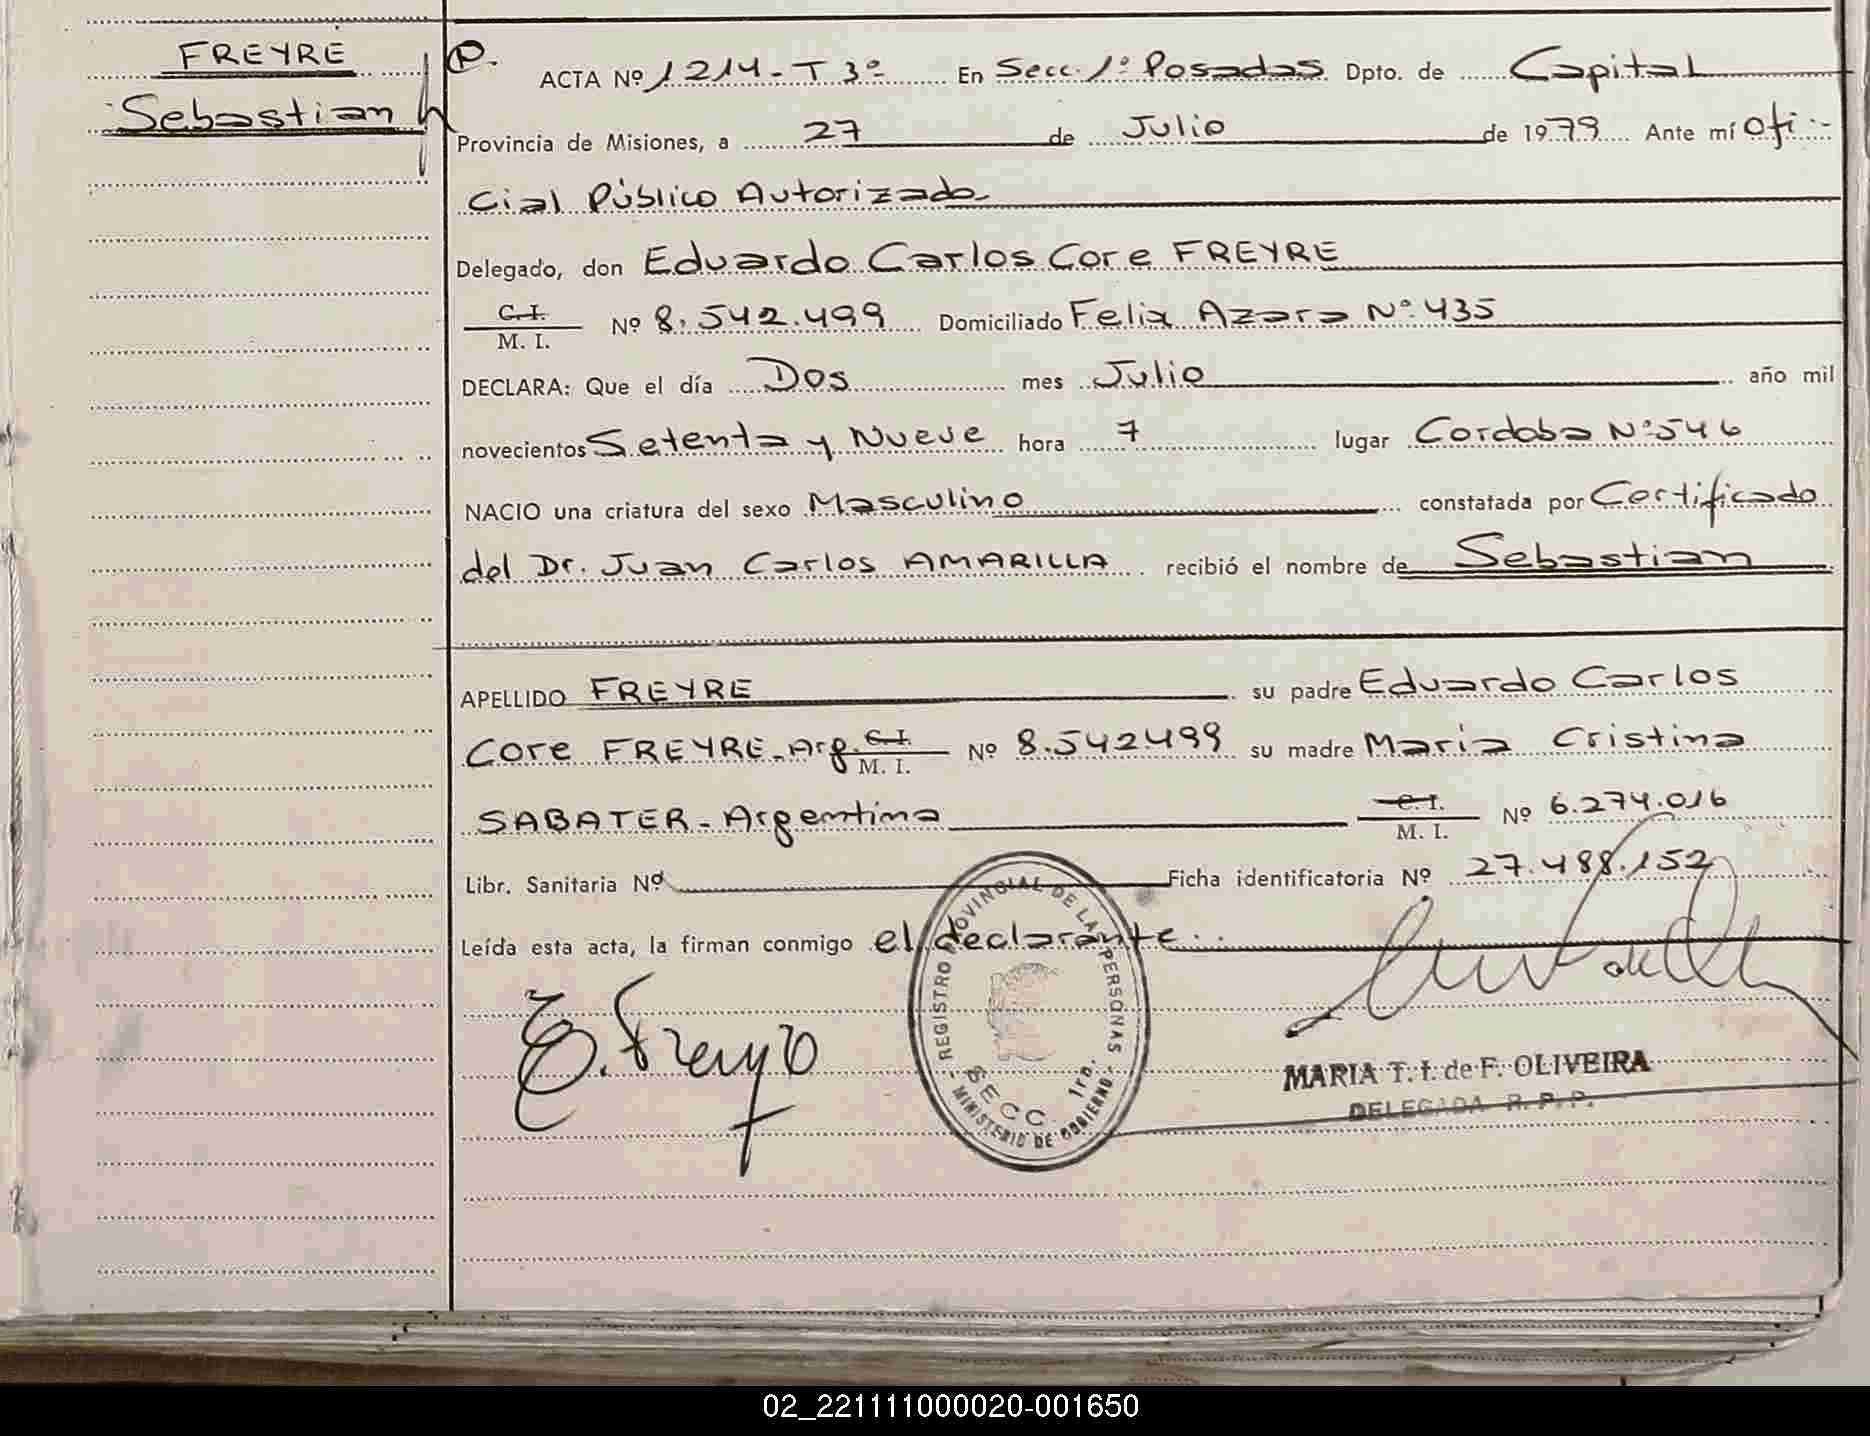 FREYRE
Sebastian
P.
ACTA Nº 1214-T 3º En Secc. 1º Posadas Dpto. de Capital
Provincia de Misiones, a 27 de Julio de 1979 Ante mí Ofi-
cial Público Autorizado-
Delegado, don Eduardo Carlos Core FREYRE
C.I.
M. I. Nº 8.542.499 Domiciliado Felix Azara Nº 435
DECLARA: Que el día Dos mes Julio año mil
novecientos Setenta y Nueve hora 7 lugar Cordoba Nº 546
NACIO una criatura del sexo Masculino constatada por Certificado
del Dr. Juan Carlos AMARILLA recibió el nombre de Sebastian
APELLIDO FREYRE su padre Eduardo Carlos
Core FREYRE-Arg. C.I. M. I. Nº 8.542499 su madre Maria Cristina
SABATER-Argentina C. I. M. I. Nº 6.274.016
Libr. Sanitaria Nº Ficha identificatoria Nº 27.488.152
Leída esta acta, la firman conmigo el declarante..
E. Freyre
REGISTRO PROVINCIAL DE LAS PERSONAS
SECC. 1ra.
MINISTERIO DE GOBIERNO
MARIA T. I. de F. OLIVEIRA
DELEGADA R. P. P.
02_221111000020-001650